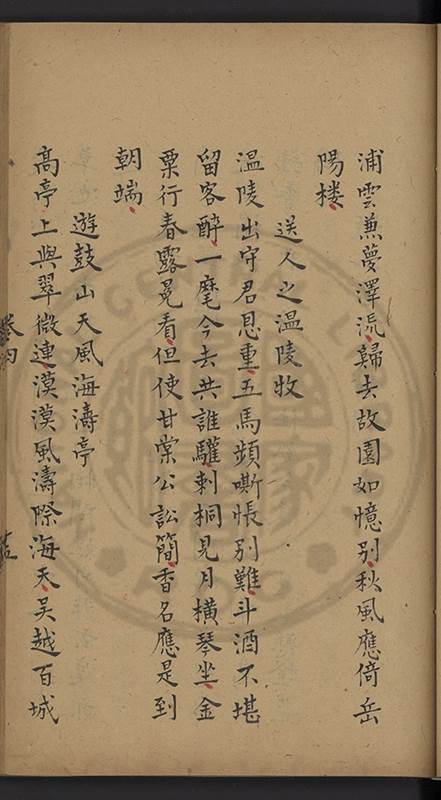 浦雲兼夢澤流歸去故園如憶別秋風應倚岳
陽樓
送人之温陵牧
温陵出守君恩重五馬頻嘶悵別難斗酒不堪
留客醉一麾今去共誰驩刺桐見月橫琴坐金
粟行春露冕看但使甘棠公訟簡香名應是到
朝端
遊鼓山天風海濤亭
高亭上與翠微連漠漠風濤際海天吳越百城
卷四